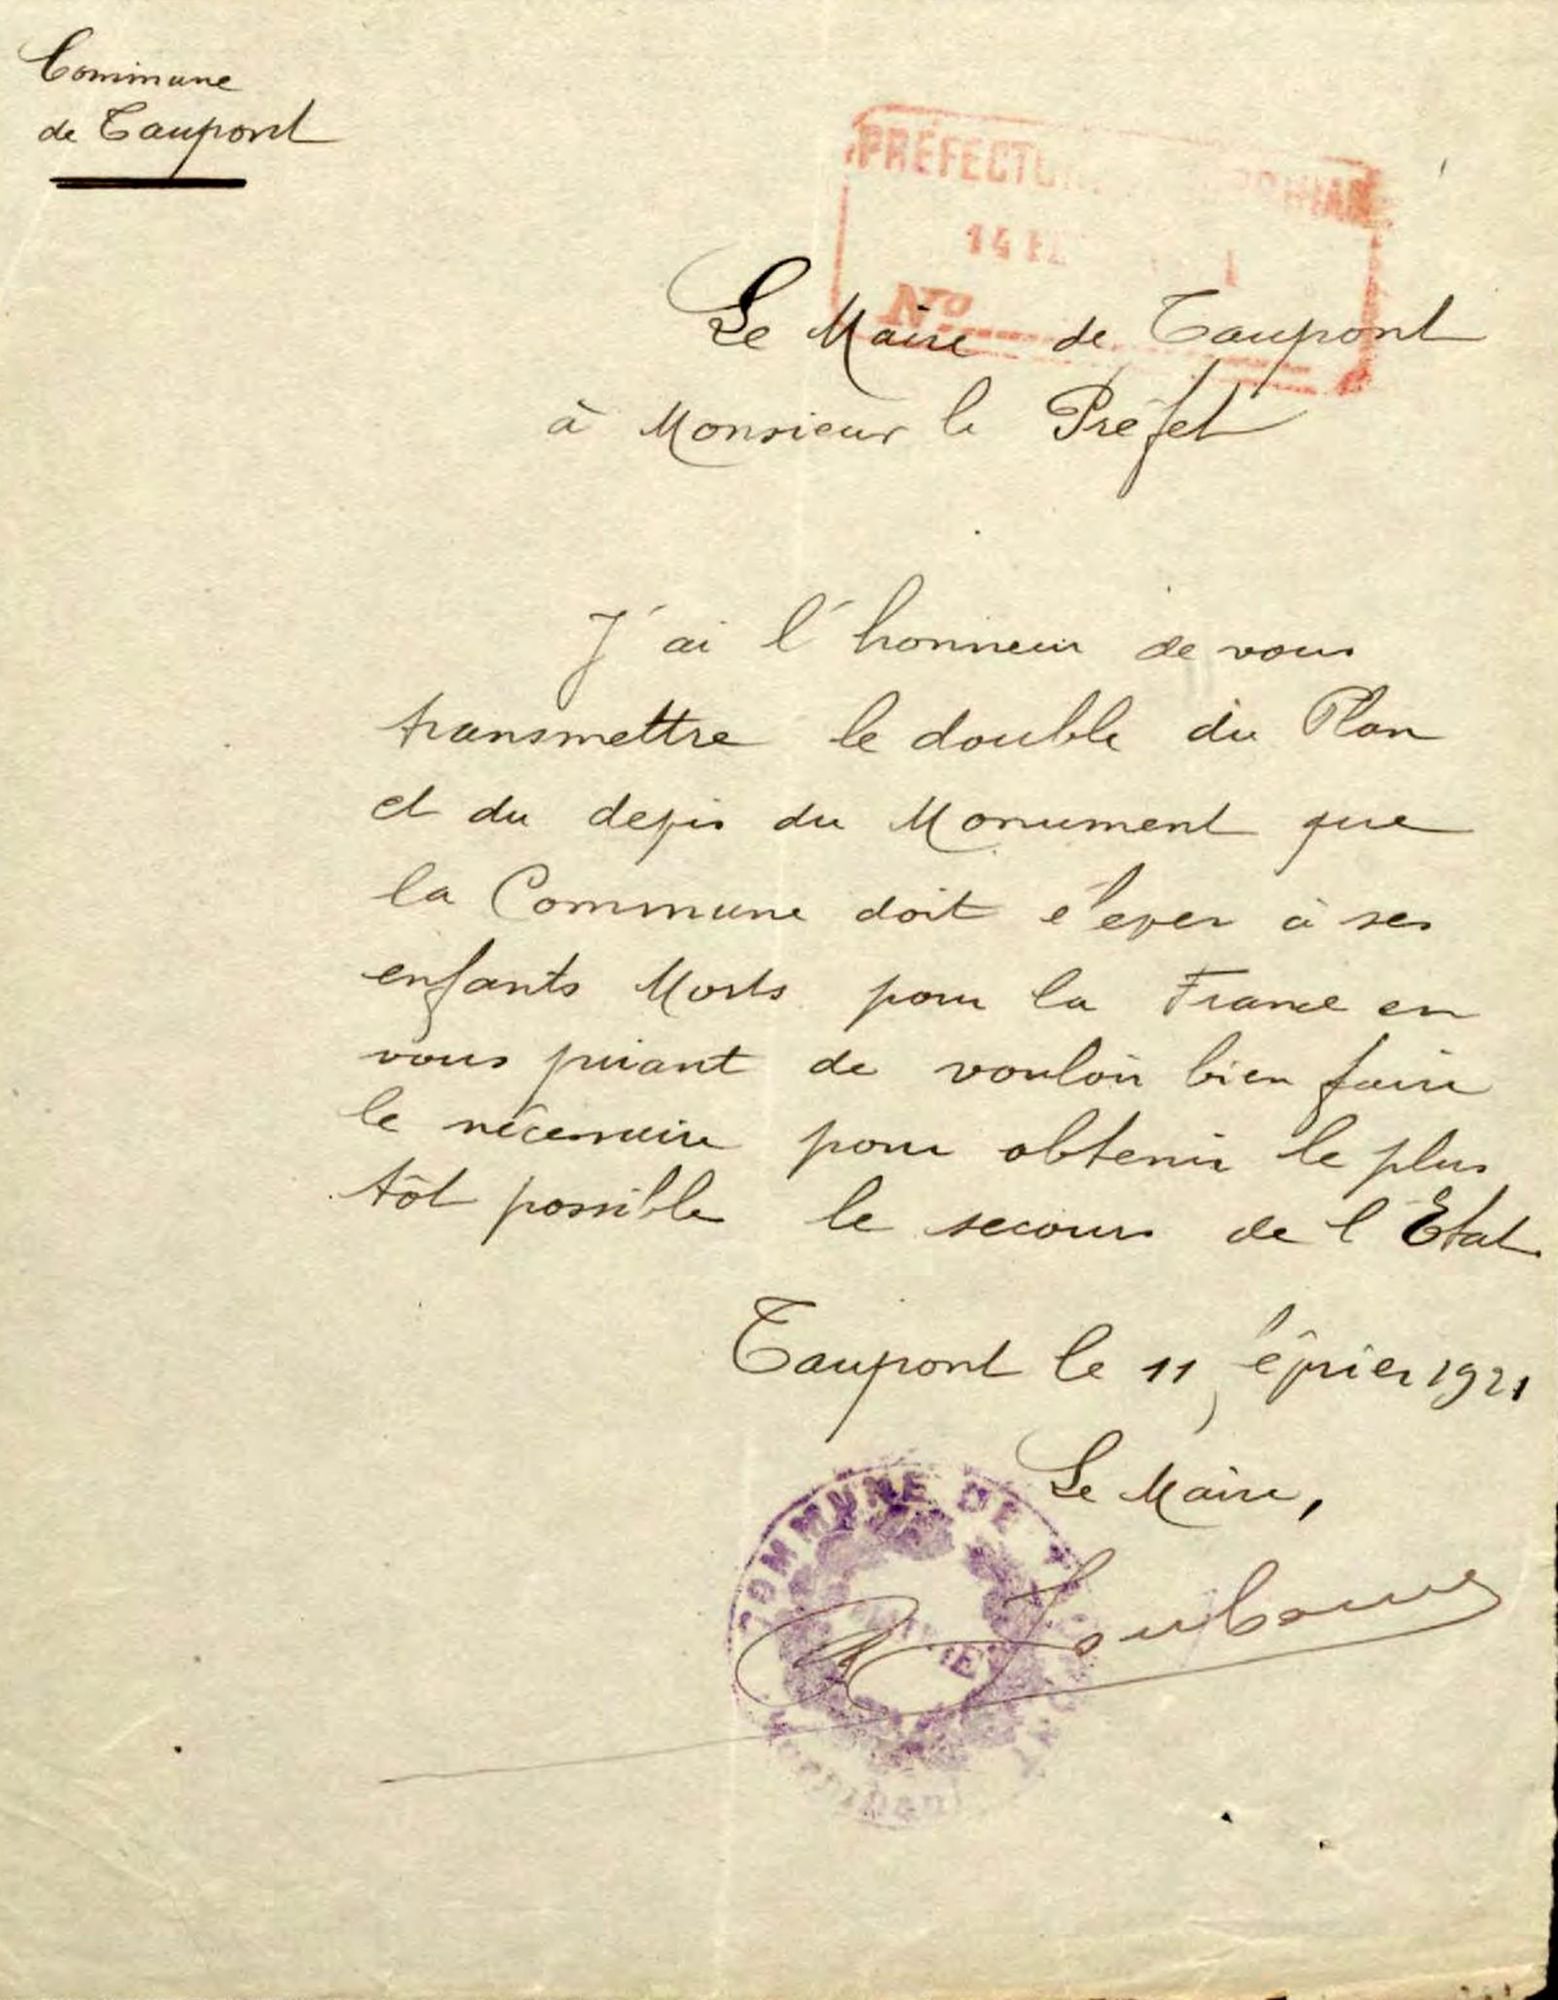 Commune
de Taupont
PRÉFECTU
14 FE 1
No
Le Maire de Taupont
à Monsieur le Préfet
J'ai l'honneur de vous
transmettre le double du Plan
et du devis du Monument que
la Commune doit élever à ses
enfants Morts pour la France en
vous priant de vouloir bien faire
le nécessaire pour obtenir le plus
tôt possible le secours de l'Etat.
Taupont le 11 février 1921
Le Maire,
COMMUNE DE T
MAIRIE
Morbihan